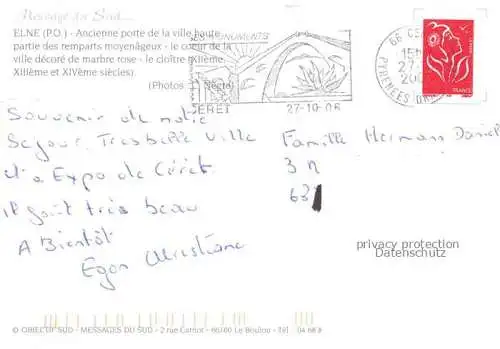 Message du Sud...
ELNE (P.O.) - Ancienne porte de la ville haute
partie des remparts moyenâgeux - le coeur de la
ville décoré de marbre rose - le cloître (XIIème,
XIIIème et XIVème siècles).
(Photos
MONUMENTS
CERET 27-10-06
66 CE
15H
27
20
PYRENEES
FRANCE
Souvenir de notre
Séjour. Très belle Ville
Expo de Céret
il fait très beau
A Bientôt
Egon Christiane
Famille Hermann Daniel
3 
68
privacy protection
Datenschutz
© OBJECTIF SUD - MESSAGES DU SUD - 2 rue Carnot - 66160 Le Boulou - Tél. 04 68 8